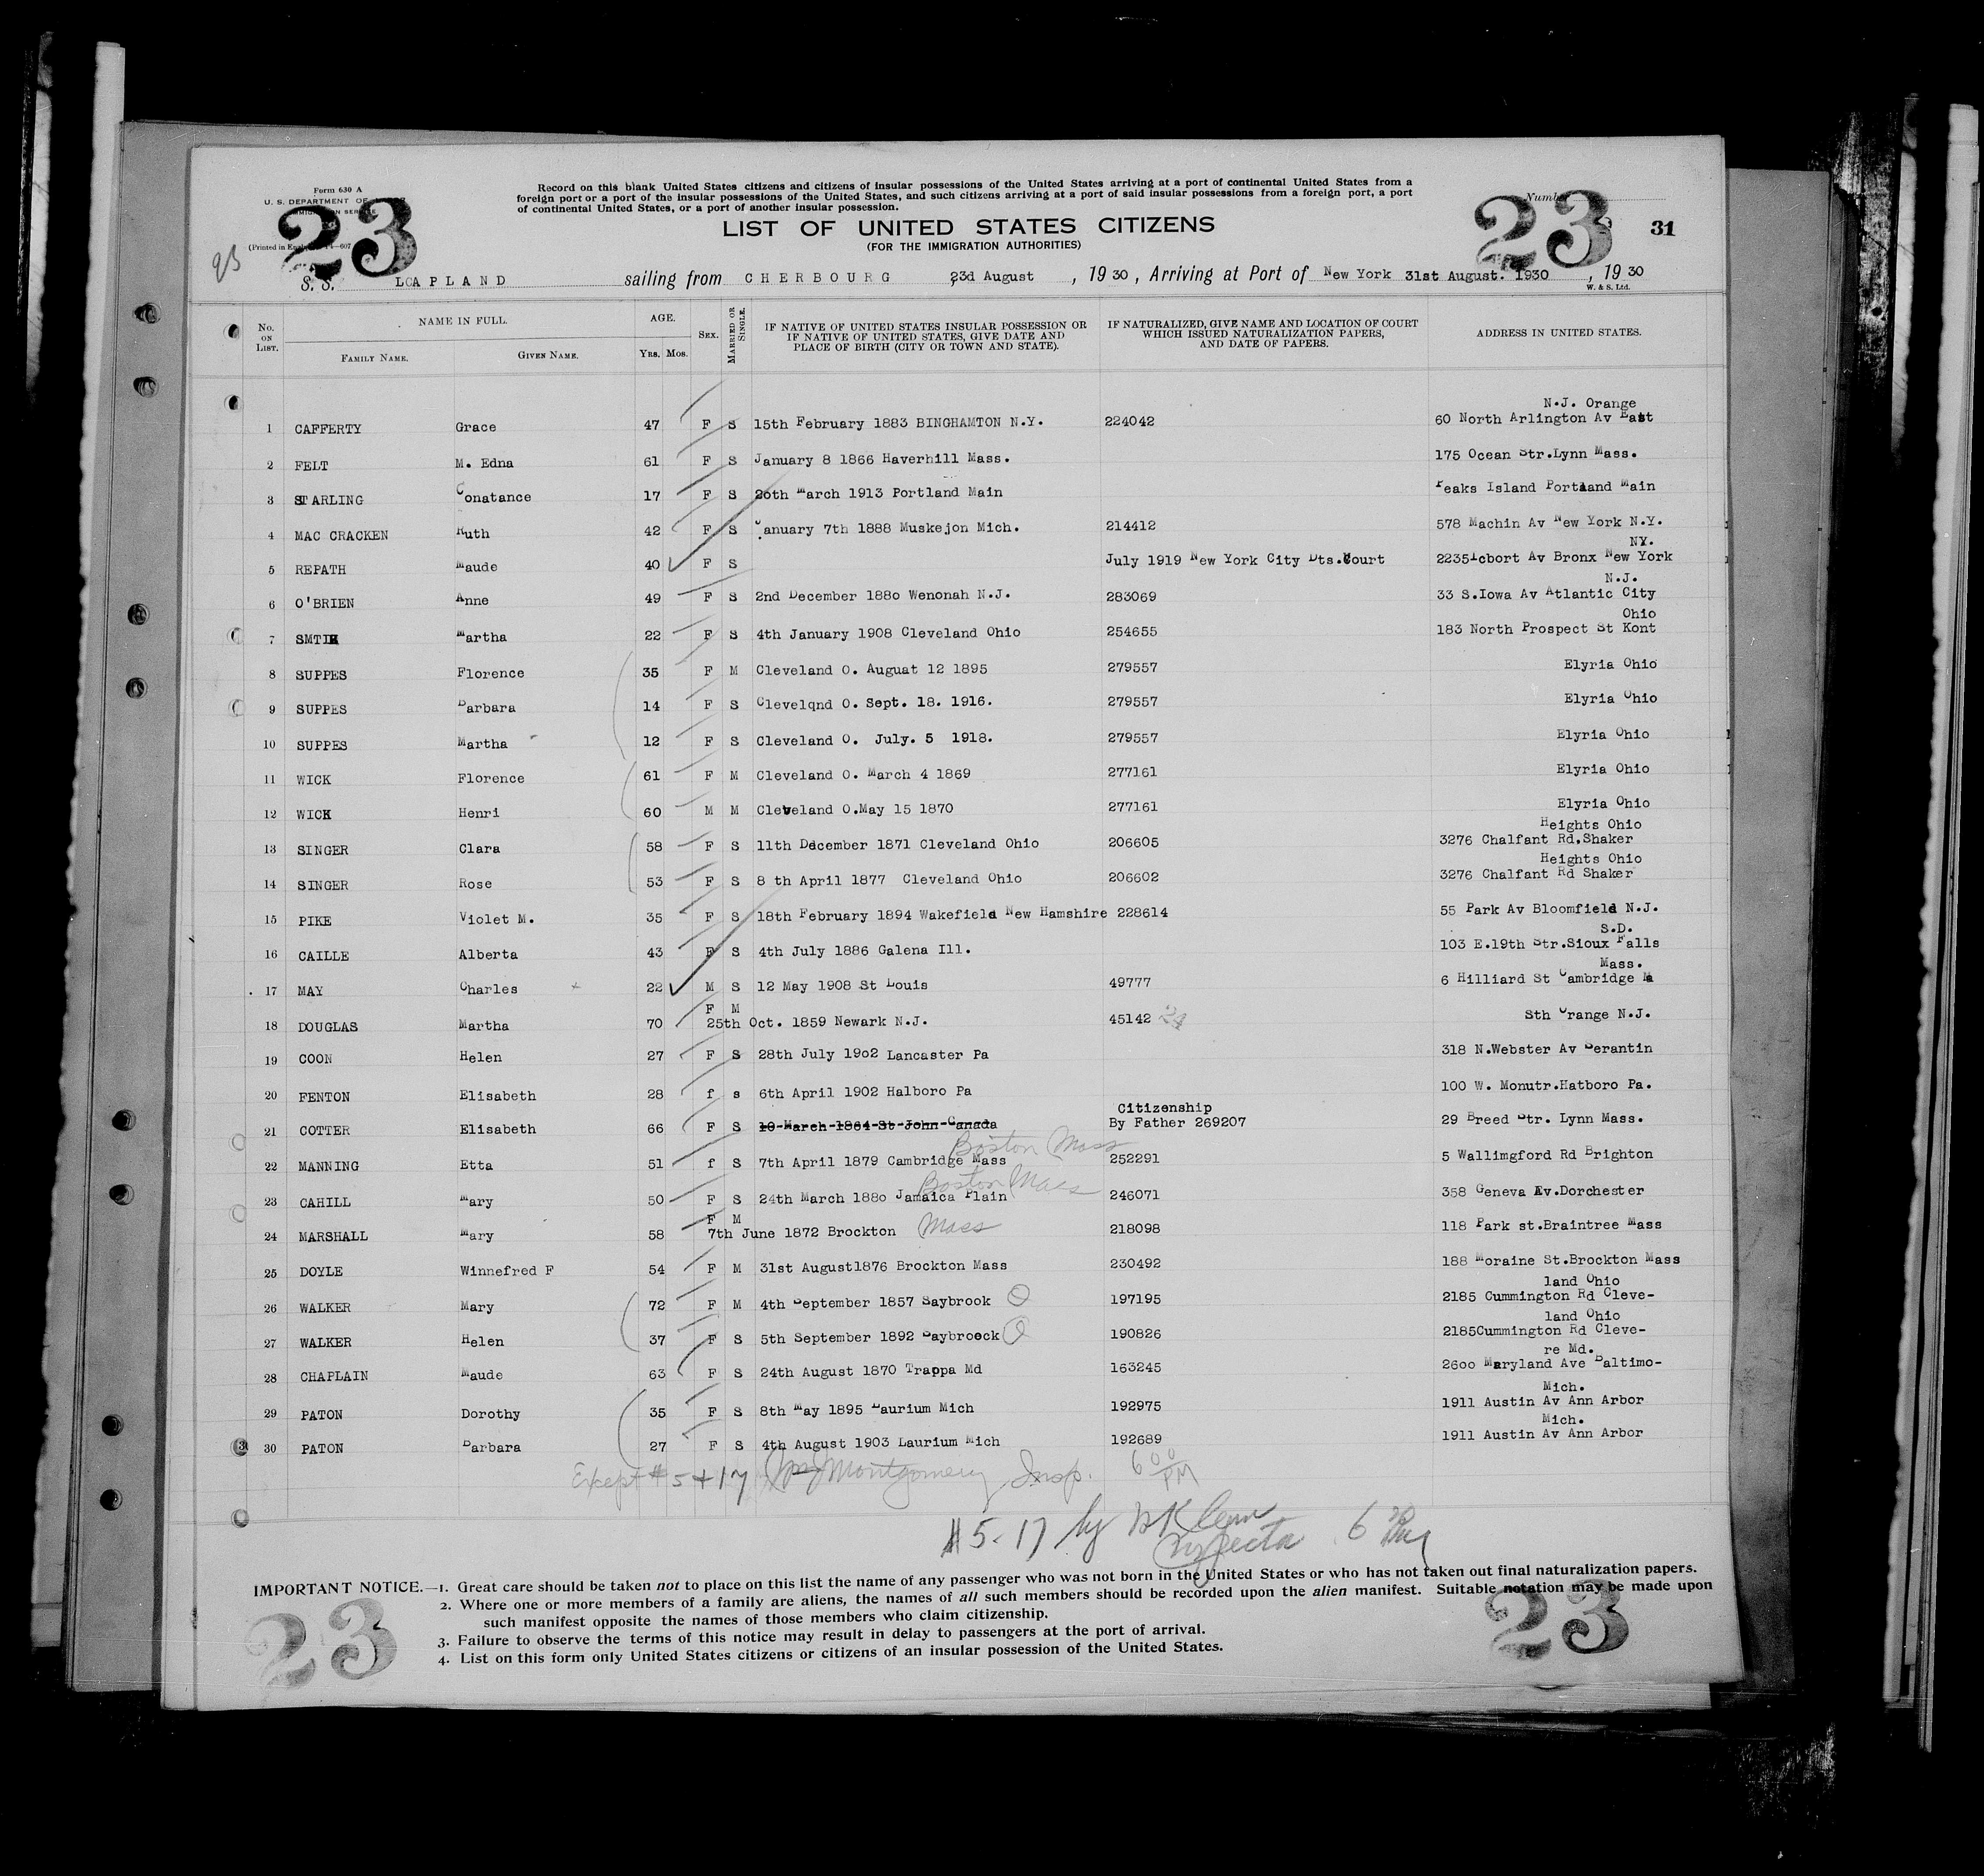 Form 630 A
U. S. DEPARTMENT OF
IMMIGRATION SERVICE
(Printed in
23
23
Record on this blank United States citizens and citizens of insular possessions of the United States arriving at a port of continental United States from a
foreign port or a port of the insular possessions of the United States, and such citizens arriving at a port of said insular possessions from a foreign port, a port
of continental United States, or a port of another insular possession.
LIST OF UNITED STATES CITIZENS
(FOR THE IMMIGRATION AUTHORITIES)
Number
23
31
S. S. LAPLAND sailing from CHERBOURG 23d August , 19 30 , Arriving at Port of New York 31st August. 1930 , 19 30
W. & S. Ltd.
No. ON LIST. NAME IN FULL. FAMILY NAME. GIVEN NAME. AGE. YRS. MOS. SEX. MARRIED OR SINGLE. IF NATIVE OF UNITED STATES INSULAR POSSESSION OR IF NATIVE OF UNITED STATES, GIVE DATE AND PLACE OF BIRTH (CITY OR TOWN AND STATE). IF NATURALIZED, GIVE NAME AND LOCATION OF COURT WHICH ISSUED NATURALIZATION PAPERS, AND DATE OF PAPERS. ADDRESS IN UNITED STATES.
N.J. Orange
1 CAFFERTY Grace 47 F S 15th February 1883 BINGHAMTON N.Y. 224042 60 North Arlington Av East
2 FELT M. Edna 61 F S January 8 1866 Haverhill Mass. 175 Ocean Str.Lynn Mass.
3 STARLING Conatance 17 F S 20th March 1913 Portland Main Peaks Island Portland Main
4 MAC CRACKEN Ruth 42 F S January 7th 1888 Muskejon Mich. 214412 578 Machin Av New York N.Y.
NY.
5 REPATH Maude 40 F S July 1919 New York City Dts.Court 2235 Av Bronx New York
N.J.
6 O'BRIEN Anne 49 F S 2nd December 1880 Wenonah N.J. 283069 33 S.Iowa Av Atlantic City
Ohio
7 SMTIH Martha 22 F S 4th January 1908 Cleveland Ohio 254655 183 North Prospect St Kont
8 SUPPES Florence 35 F M Cleveland O. Auguat 12 1895 279557 Elyria Ohio
9 SUPPES Barbara 14 F S Clevelqnd O. Sept. 18. 1916. 279557 Elyria Ohio
10 SUPPES Martha 12 F S Cleveland O. July. 5 1918. 279557 Elyria Ohio
11 WICK Florence 61 F M Cleveland O. March 4 1869 277161 Elyria Ohio
12 WICK Henri 60 M M Cleveland O.May 15 1870 277161 Elyria Ohio
Heights Ohio
13 SINGER Clara 58 F S 11th December 1871 Cleveland Ohio 206605 3276 Chalfant Rd.Shaker
Heights Ohio
14 SINGER Rose 53 F S 8 th April 1877 Cleveland Ohio 206602 3276 Chalfant Rd Shaker
15 PIKE Violet M. 35 F S 18th February 1894 Wakefield New Hamshire 228614 55 Park Av Bloomfield N.J.
S.D.
16 CAILLE Alberta 43 F S 4th July 1886 Galena Ill. 103 E.19th Str.Sioux Falls
Mass.
17 MAY Charles 22 M S 12 May 1908 St Louis 49777 6 Hilliard St Cambridge
F M
18 DOUGLAS Martha 70 25th Oct. 1859 Newark N.J. 45142 24 Sth Orange N.J.
19 COON Helen 27 F S 28th July 1902 Lancaster Pa 318 N.Webster Av Derantin
20 FENTON Elisabeth 28 f s 6th April 1902 Halboro Pa 100 W. Monutr.Hatboro Pa.
Citizenship
21 COTTER Elisabeth 66 F S 10 March 1864 St John Canada By Father 269207 29 Breed Str. Lynn Mass.
Boston Mass
22 MANNING Etta 51 f S 7th April 1879 Cambridge Mass 252291 5 Wallimgford Rd Brighton
Boston Mass
23 CAHILL Mary 50 F S 24th March 1880 Jamaica Plain 246071 358 Geneva Av.Dorchester
F M
24 MARSHALL Mary 58 7th June 1872 Brockton Mass 218098 118 Park st.Braintree Mass
25 DOYLE Winnefred F 54 F M 31st August1876 Brockton Mass 230492 188 Moraine St.Brockton Mass
land Ohio
26 WALKER Mary 72 F M 4th September 1857 Saybrook O 197195 2185 Cummington Rd Cleve-
land Ohio
27 WALKER Helen 37 F S 5th September 1892 Saybroeck O 190826 2185Cummington Rd Cleve-
re Md.
28 CHAPLAIN Maude 63 F S 24th August 1870 Trappa Md 163245 2600 Maryland Ave Baltimo-
Mich.
29 PATON Dorothy 35 F S 8th May 1895 Laurium Mich 192975 1911 Austin Av Ann Arbor
Mich.
30 PATON Barbara 27 F S 4th August 1903 Laurium Mich 192689 1911 Austin Av Ann Arbor
Except # 5 + 17 Montgomery Insp. 6 00 PM
# 5-17 by Inspector 6
IMPORTANT NOTICE.—1. Great care should be taken not to place on this list the name of any passenger who was not born in the United States or who has not taken out final naturalization papers.
2. Where one or more members of a family are aliens, the names of all such members should be recorded upon the alien manifest. Suitable notation may be made upon
such manifest opposite the names of those members who claim citizenship.
3. Failure to observe the terms of this notice may result in delay to passengers at the port of arrival.
4. List on this form only United States citizens or citizens of an insular possession of the United States.
23
23